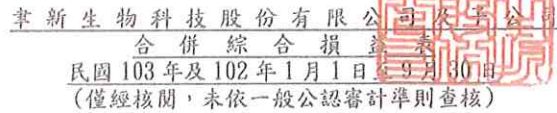 聿新生物科技股份有限公司及子公司
合併綜合損益表
民國103年及102年1月1日至9月30日
(僅經核閱，未依一般公認審計準則查核)